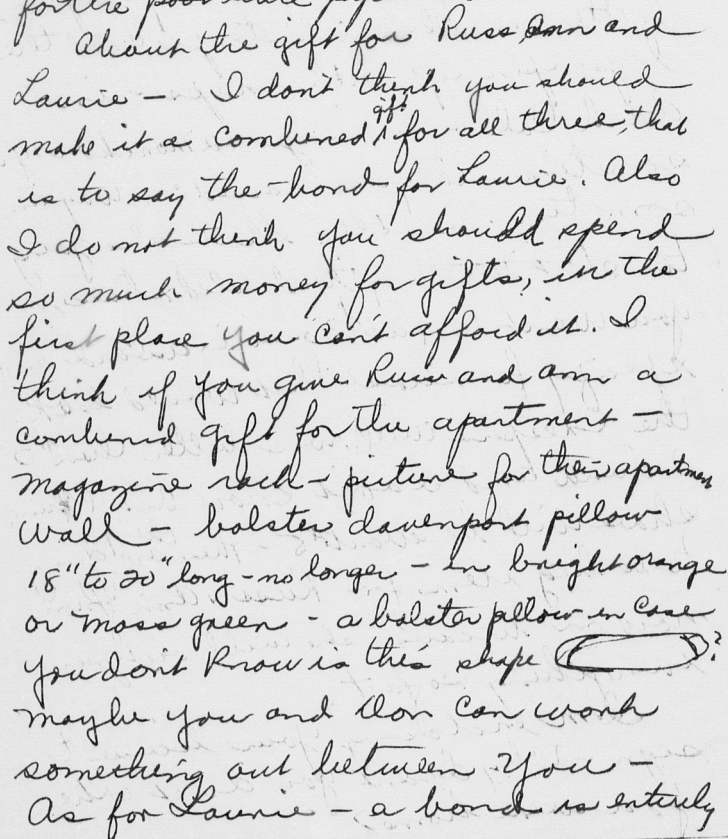 for the poor
About the gift for Russ Ann and
Laurie — I don't think you should
gift
make it a combined ^ for all three, that
is to say the bond for Laurie. Also
I do not think you should spend
so much money for gifts, in the
first place you can't afford it. I
think if you give Russ and Ann a
combined gift for the apartment —
magazine rack — picture for their apartment
wall — bolster davenport pillow
18" to 20" long - no longer - in bright orange
or moss green - a bolster pillow in case
you don't know is this shape ?
maybe you and Don can work
something out between you —
As for Laurie — a bond is entirely